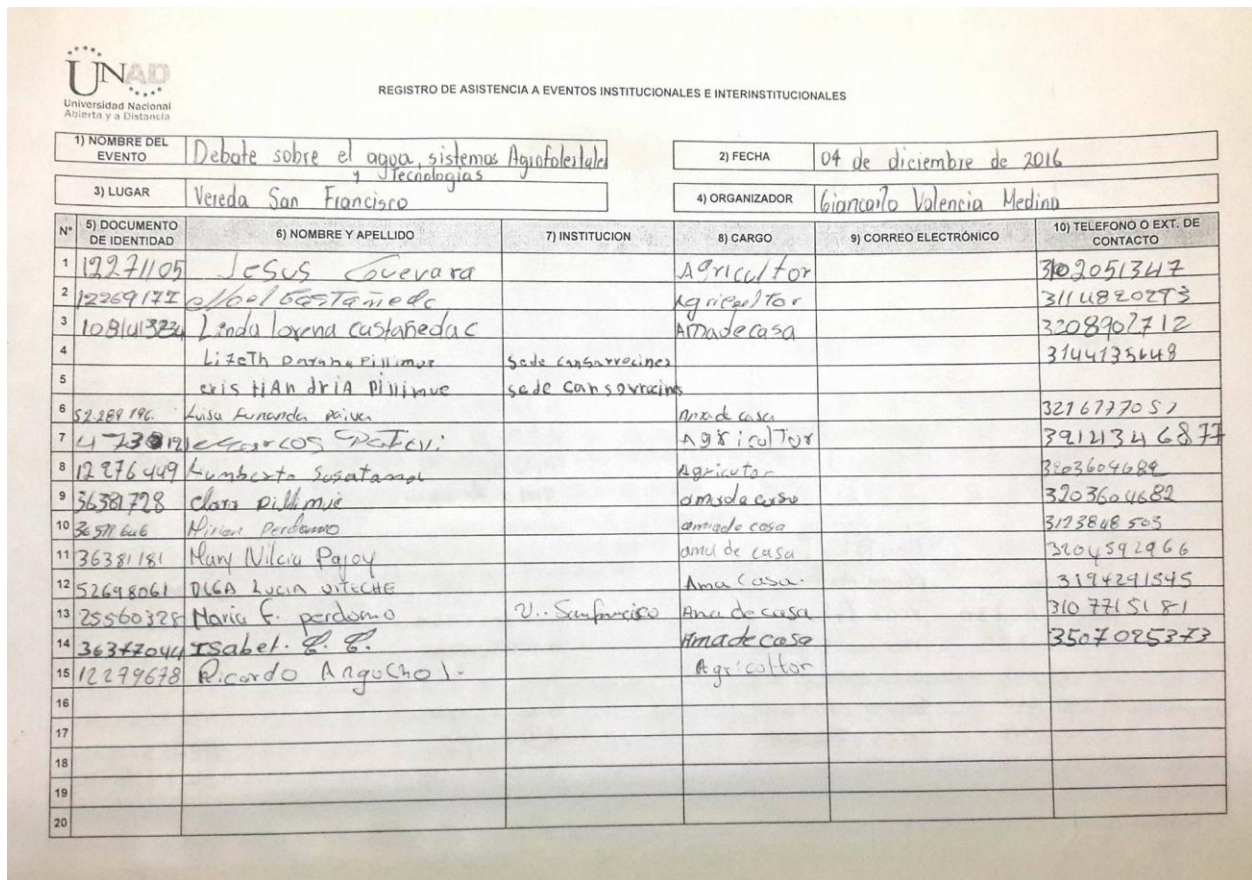 UNAD
Universidad Nacional
Abierta y a Distancia
REGISTRO DE ASISTENCIA A EVENTOS INSTITUCIONALES E INTERINSTITUCIONALES
1) NOMBRE DEL EVENTO Debate sobre el agua, sistemas Agroforestales y Tecnologias
2) FECHA 04 de diciembre de 2016
3) LUGAR Vereda San Francisco
4) ORGANIZADOR Giancarlo Valencia Medina
N° 5) DOCUMENTO DE IDENTIDAD 6) NOMBRE Y APELLIDO 7) INSTITUCION 8) CARGO 9) CORREO ELECTRÓNICO 10) TELEFONO O EXT. DE CONTACTO
1 12271105 Jesus Guevara Agricultor 3102051347
2 12269177 Castañeda Agricultor 3114820293
3 Linda lorena castañeda c Amadecasa 3208902712
4 LizeTh Pillimue Sede 3144135648
5 cristiAn Pillimue sede
6 52.289.196. Luisa Fernanda Paiva Ama de casa 3216777051
7 AgricolTor
8 12276449 Humberto Agricutor 3203604682
9 36381728 Clara Pillimue ama de casa 3203604682
10 Mirian Perdomo ama de casa 3123848503
11 36381181 Mary Nilcia Pajoy ama de casa 3204592966
12 52698061 OLGA LUCIA VITECHE Ama Casa. 3194291545
13 25560328 Maria F. perdomo V.. Sanfrancisco Ama de casa 3107715181
14 36377044 ISabel. Amadecasa 3507025373
15 12279678 Ricardo Angucho l. Agricoltor
16
17
18
19
20